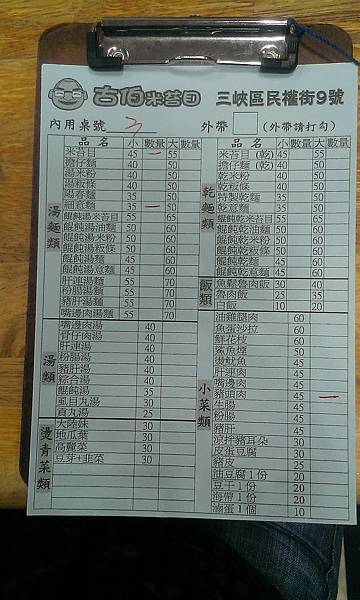 古伯米苔目 三峽區民權街9號
內用桌號 3 外帶 (外帶請打勾)
品名 小 數量 大 數量
湯麵類
米苔目 45 一 55
擔仔麵 40 50
湯米粉 40 50
湯粄條 40 50
陽春麵 35 50
細意麵 35 一 50
餛飩湯米苔目 55 65
餛飩湯油麵 50 60
餛飩湯米粉 50 60
餛飩湯粄條 50 60
餛飩湯麵 45 60
餛飩湯意麵 45 60
肝連湯麵 55 70
粉腸湯麵 55 70
豬肝湯麵 55 70
嘴邊肉湯麵 55 70
湯類
嘴邊肉湯 40
骨仔肉湯 40
肝連湯 40
粉腸湯 40
豬肝湯 40
綜合湯 40
餛飩湯 35
虱目丸湯 30
貢丸湯 25
燙青菜類
大陸妹 30
地瓜葉 30
高麗菜 30
豆芽+韭菜 30
品名 小 數量 大 數量
乾麵類
米苔目(乾) 45 55
擔仔麵(乾) 40 50
乾米粉 40 50
乾粄條 40 50
特製乾麵 35 50
乾意麵 35 50
餛飩乾米苔目 55 65
餛飩乾油麵 50 60
餛飩乾米粉 50 60
餛飩乾粄條 50 60
餛飩乾麵 45 60
餛飩乾意麵 45 60
飯類
魚鬆魯肉飯 30 40
魯肉飯 25 35
白飯 10 20
小菜類
油雞腿肉 60
魚蛋沙拉 60
鮮花枝 60
鯊魚煙 50
燙魷魚 45
肝連肉 45
嘴邊肉 45
豬頭肉 45 一
生腸 45
粉腸 45
豬肝 45
涼拌豬耳朵 30
皮蛋豆腐 30
豬皮 25
油豆腐1份 20
豆干1份 20
海帶1份 20
滷蛋1個 10